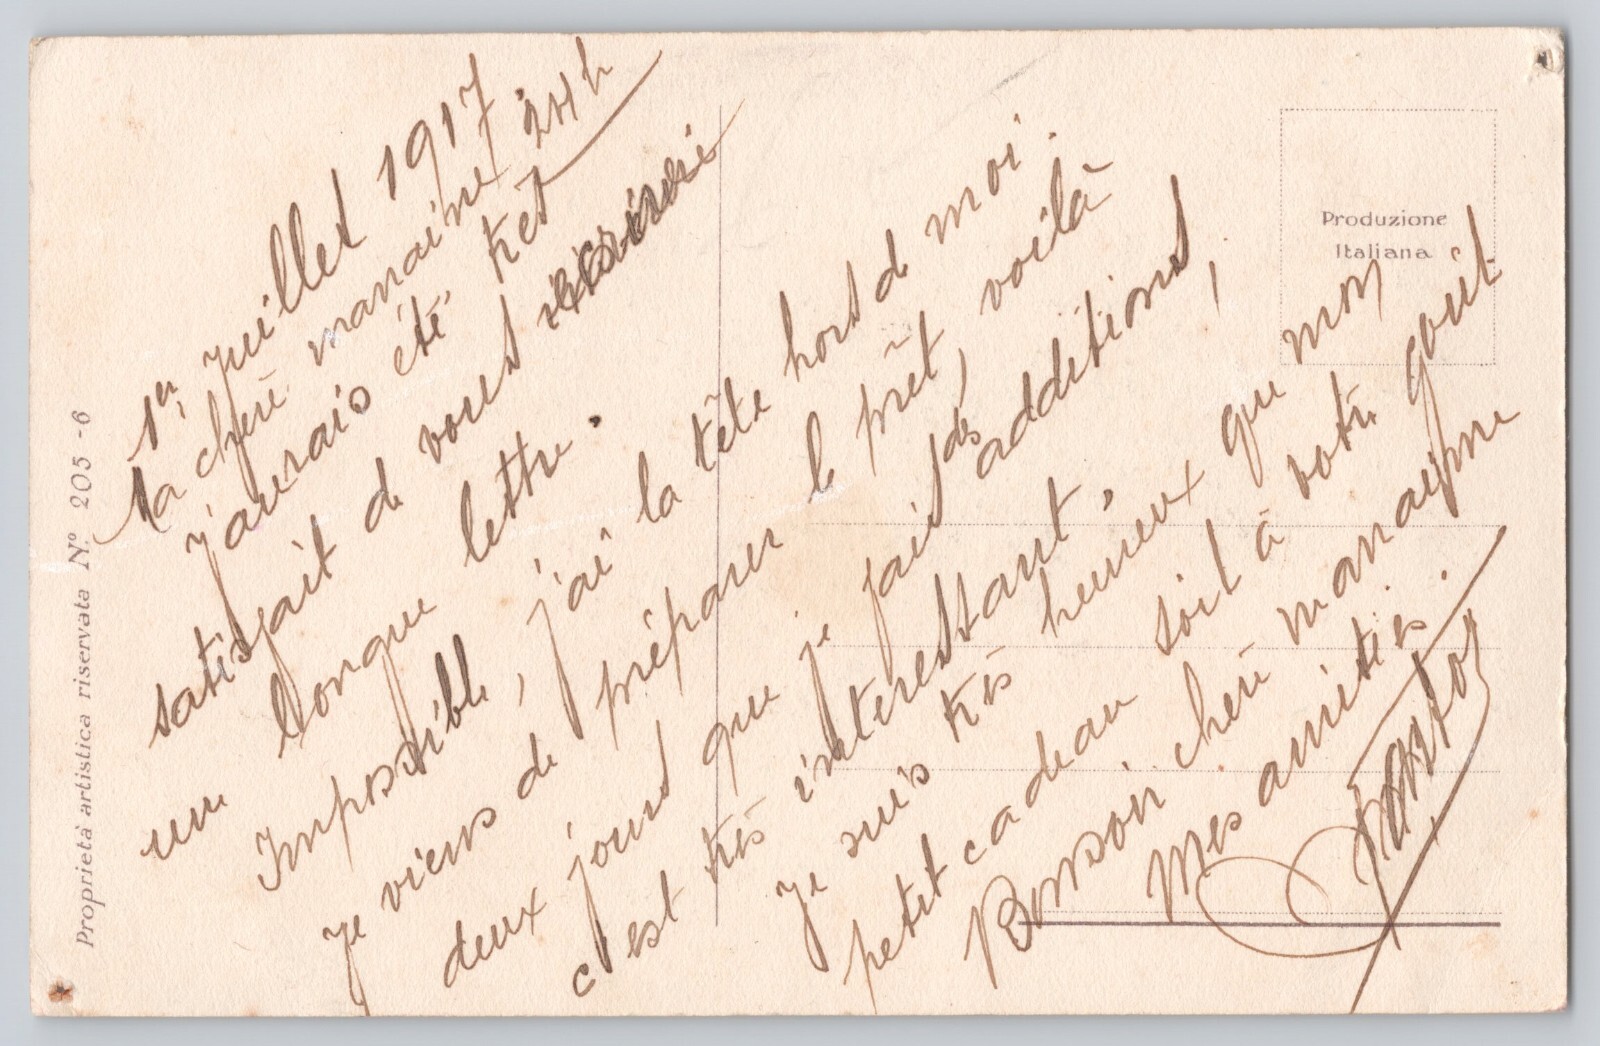 1er juillet 1917. 24 h
Ma chère marraine
j'aurais été, très
satisfait de vous écrire
une longue lettre.
Impossible, j'ai la tête hors de moi.
Je viens de préparer le prêt, voilà
deux jours que je fais des additions,
c'est très interessant,
Je suis très heureux que mon
petit cadeau soit à votre goût
Bonsoir chère marraine
mes amitiés.
Produzione
Italiana
Proprietà artistica riservata N.º 205-6